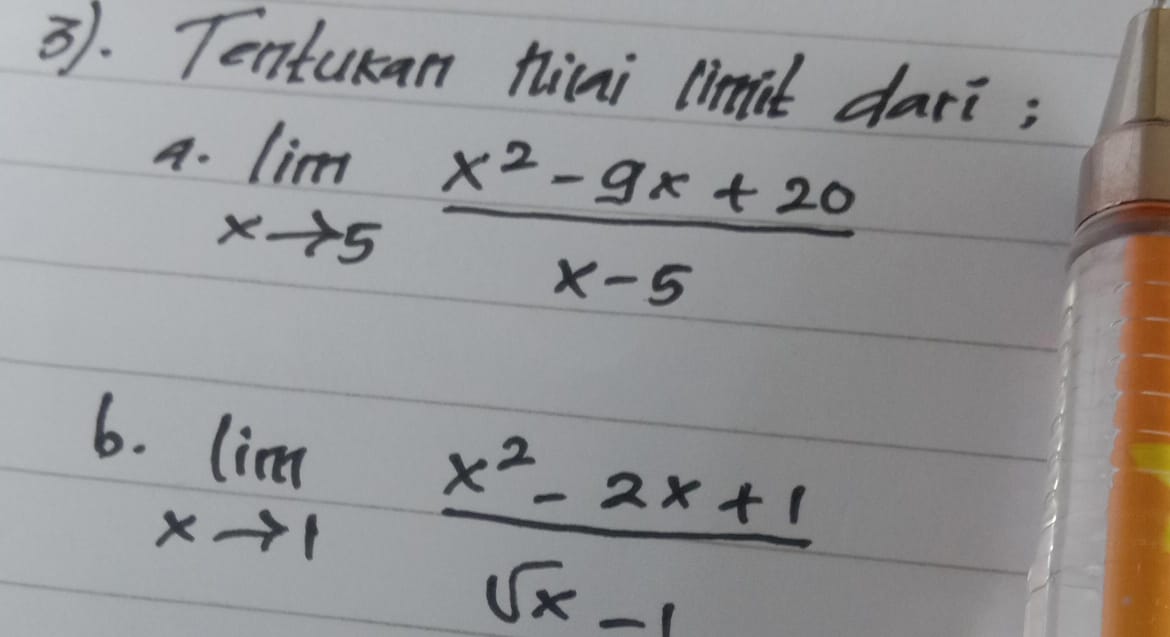 3). Tentukan nilai limit dari ;
a. lim x²-9x+20
x→5 x-5
b. lim x²-2x+1
x→1 √x-1